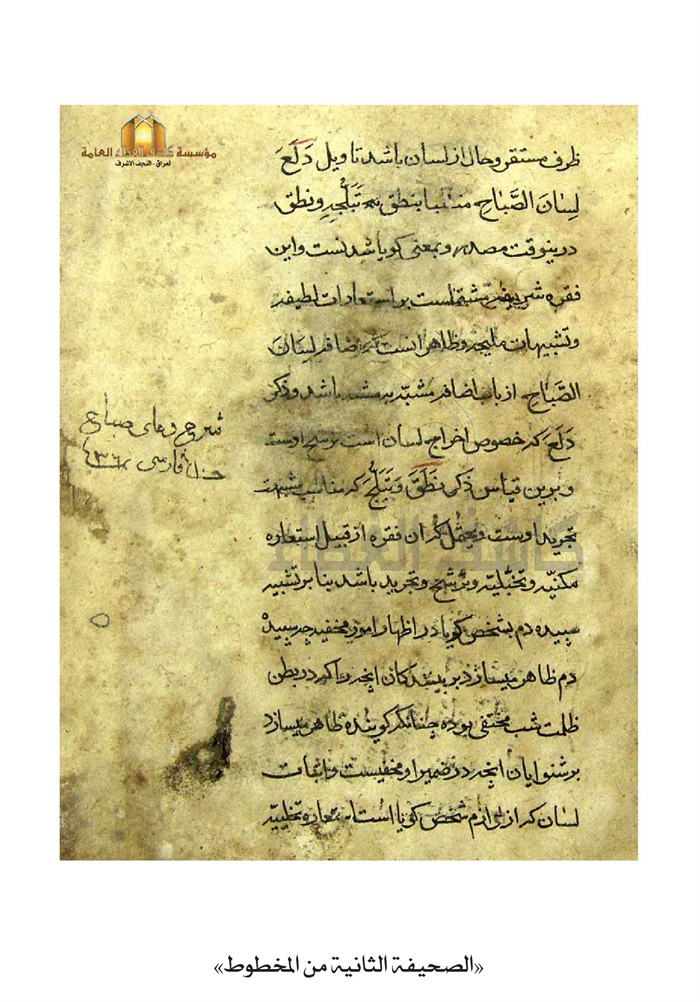 مؤسسة كاشف الغطاء العامة
العراق - النجف الاشرف
ظرف مستقر و حال از لسان باشد تاویل دَلَعَ
لِسٰانَ الصَّبٰاحِ متلبسا بنطق تَبَلُّجِهِ و نطق
درینوقت مصدر و بمعنی کویا شدنست و این
فقره شریفه مشتملست بر استعارات لطیفه
و تشبیهات ملیحه و ظاهر انست که اضافه لسان
الصَّبٰاحِ از باب اضافه مشبّه به بمشبه باشد و ذکر
دَلَعَ که خصوص اخراج لسان است ترشیح اوست
و برین قیاس ذکر نطق و تبلج که مناسب مشبهند
تجرید اوست و یحتمل که ان فقره از قبیل استعاره
مکنیّه و تخییلیّه و ترشیح و تجرید باشد بنا بر تشبیه
سپیده دم بشخص کویا در اظهار امور مخفیه چه سپیده
دم ظاهر میسازد بر بینندکان انچه را که در بطن
ظلمت شب مختفی بوده چنانکه کوینده ظاهر میسازد
بر شنوایان انچه در ضمیر او مخفیست و اثبات
لسان که از لوازم شخص کویا است استعاره تخییلیّه
شرح دعای صباح
فارسی
كاشف الغطاء
«الصحيفة الثانية من المخطوط»